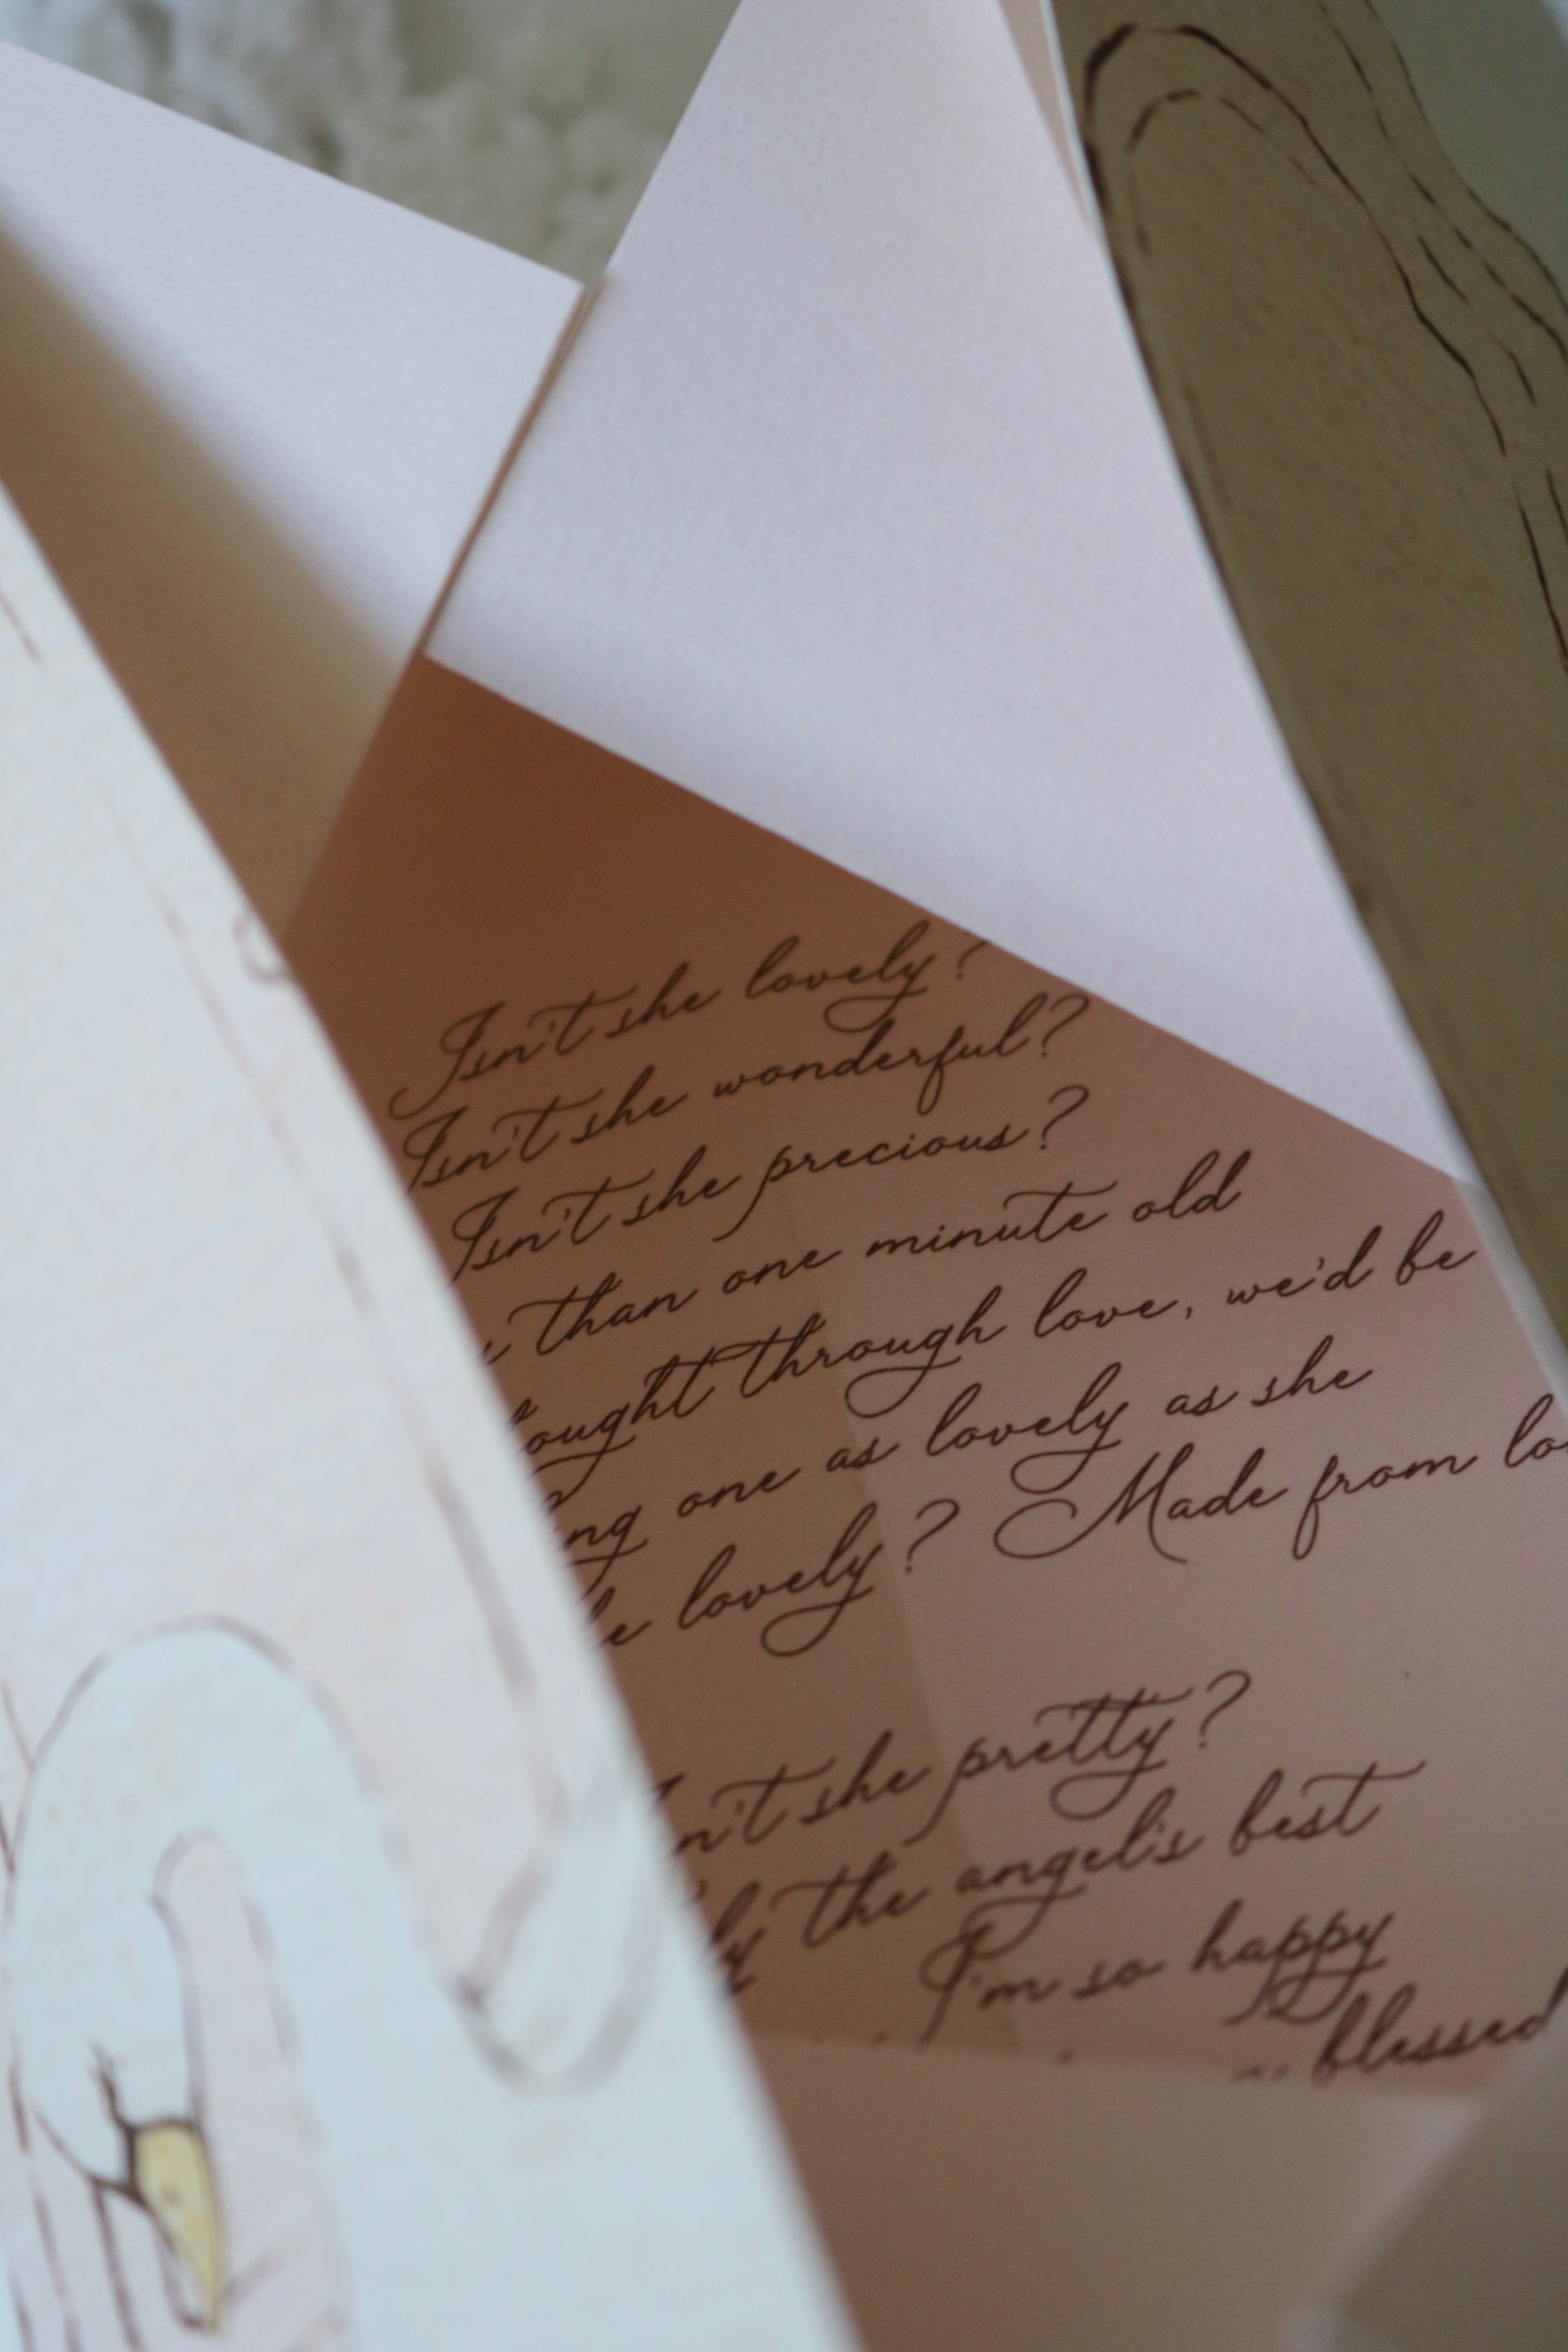 Isn't she lovely?
Isn't she wonderful?
Isn't she precious?
than one minute old
ought through love, we'd be
ing one as lovely as she
he lovely? Made from lo
n't she pretty?
ly the angel's best
I'm so happy
blessed